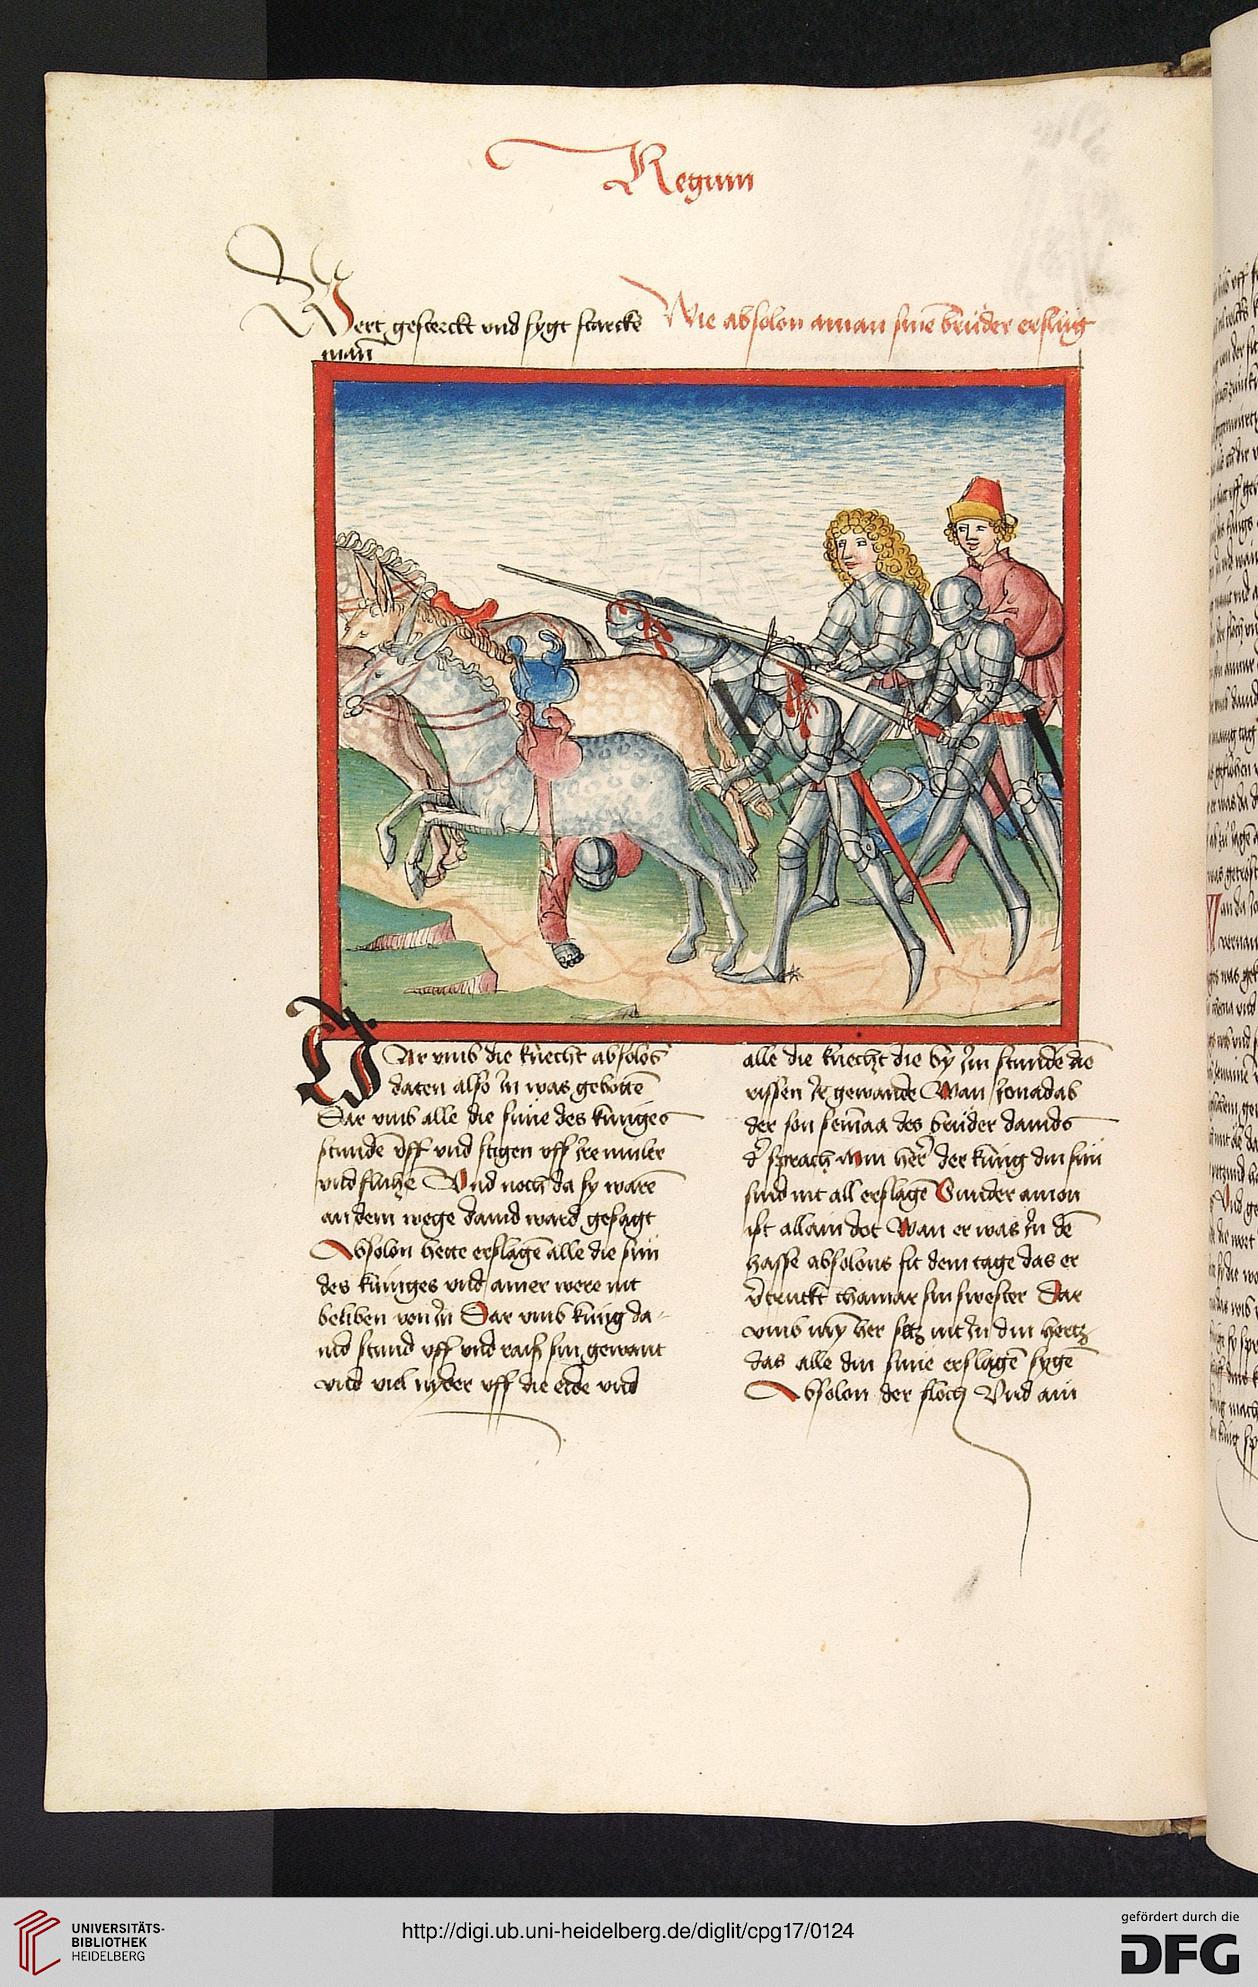 Regum
Wert gesterckt vnd sygt starcke
man̄
Wie absolon aman sinē brůder erslůg
Dar vmb die knecht absolos
daten also Im was gebottē
Dar vmb alle die süne des küniges
stundē vff vnd stigen vff Ire muler
vnd fluhē Vnd noch da sy warē
an dem wege dauid ward gesagt
Absolon hette erslagē alle die sün
des küniges vnd ainer were nit
beliben von In Dar vmb küng da-
uid stund vff vnd raiß sin gewant
vnd viel nyder vff die erde vnd
alle die knecht die by Im stundē die
rissen Ir gewande Wan Jonadab
der son semaa des brůder dauids
d' sprach min her' der küng din sün
sind nit all erslagē Sunder amon
ist allain dot Wan er was In dē
hasse absolons sit dem tage das er
v'truckt thamar sin swester Dar
vmb my her setz nit In din hertz
das alle din süne erslagē sygē
Absolon der floch Vnd ain
UNIVERSITÄTS-
BIBLIOTHEK
HEIDELBERG
http://digi.ub.uni-heidelberg.de/diglit/cpg17/0124
gefördert durch die
DFG